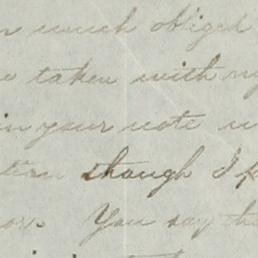 much obliged
taken with my
in your note
though I
You say tha